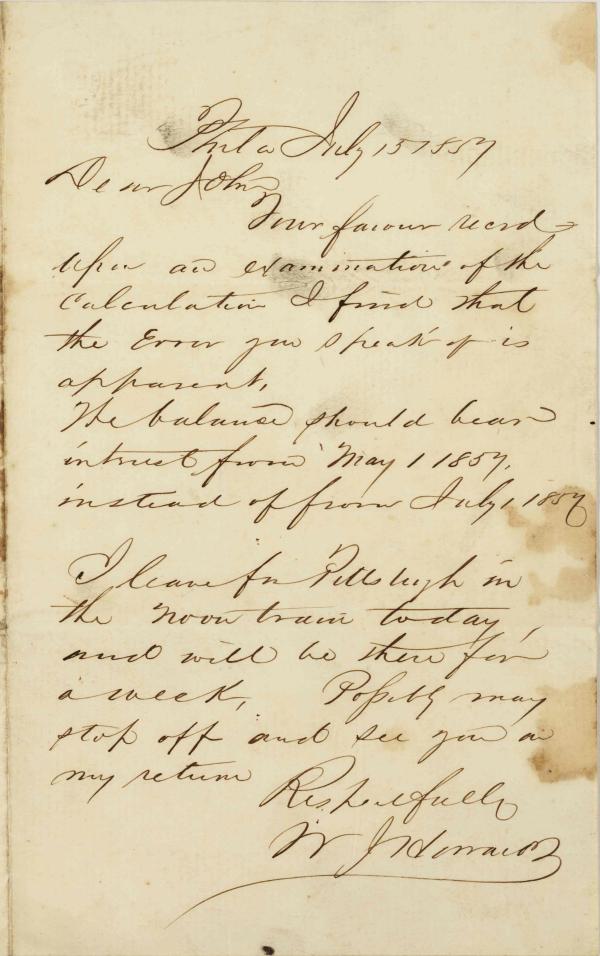 Phila July 15 1857
Dear John
Your favour recd
Upon an examination of the
Calculation I find that
the Error you speak of is
apparent,
The balance should bear
intrest from May 1 1857,
instead of from July 1, 1857
I leave for Pittsburgh in
the Noon train today,
and will be there for
a week, Possibly may
stop off and see you on
my return
Respectfully
W J Howard